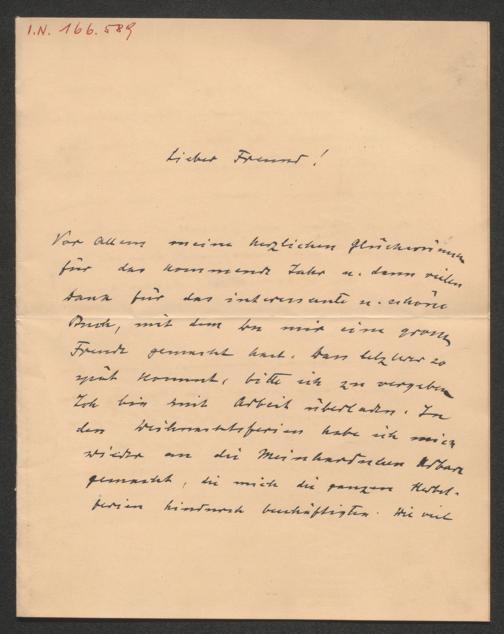 I.N. 166.589
Lieber Freund!
Vor Allem meine herzlichen Glückwünsche
für das kommende Jahr u. dann vielen
Dank für das interessante u. schöne
Buch, mit dem Du mir eine grosse
Freude gemacht hast. Dass letzterer so
spät kommt, bitte ich zu vergeben
Ich bin mit Arbeit überladen. In
den Weihnachtsferien habe ich mich
wieder an die Arbeit
gemacht, die mich die ganzen Herbst-
ferien hindurch beschäftigten. Wie viel